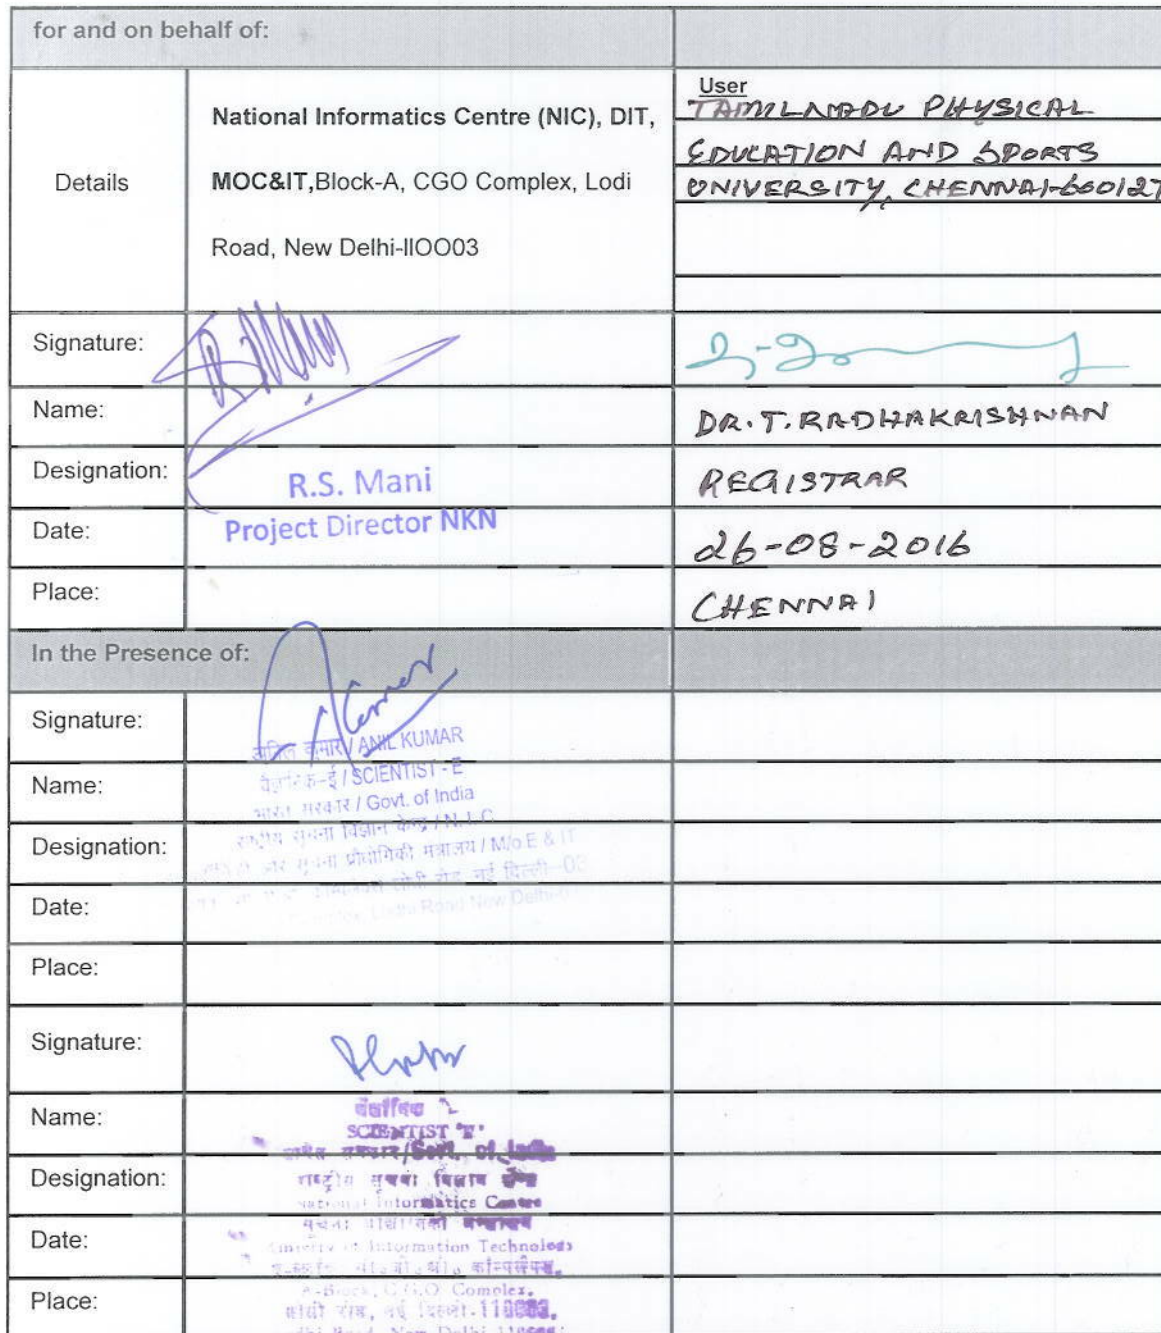 for and on behalf of:
Details
National Informatics Centre (NIC), DIT,
MOC&IT,Block-A, CGO Complex, Lodi
Road, New Delhi-IIOO03
User
TAMILNADU PHYSICAL
EDUCATION AND SPORTS
UNIVERSITY, CHENNAI-600127
Signature:
Name:
DR. T. RADHAKRISHNAN
Designation:
R.S. Mani
REGISTRAR
Date:
Project Director NKN
26-08-2016
Place:
CHENNAI
In the Presence of:
Signature:
अनिल कुमार / ANIL KUMAR
Name:
वैज्ञानिक-ई / SCIENTIST - E
भारत सरकार / Govt. of India
राष्ट्रीय सूचना विज्ञान केन्द्र / N.I.C
Designation:
और सूचना प्रौद्योगिकी मंत्रालय / M/o E & IT
लोधी रोड नई दिल्ली-03
Date:
Lodhi Road New Delhi-0
Place:
Signature:
वैज्ञानिक
Name:
SCIENTIST 'E'
भारत सरकार/Govt. of India
Designation:
राष्ट्रीय सूचना विज्ञान केन्द्र
National Informatics Centre
Date:
Ministry of Information Technology
A-Block, C.G.O Complex,
Place:
लोधी रोड, नई दिल्ली-110003.
Lodhi Road, New Delhi-110003